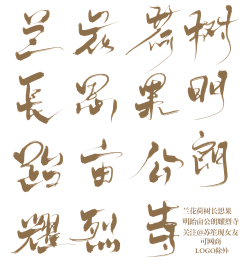 兰花荷树
長思果明
跆宙公朗
耀烈寺
兰花荷树长思果
明跆宙公朗耀烈寺
关注@苏笙现女友
可网商
LOGO除外